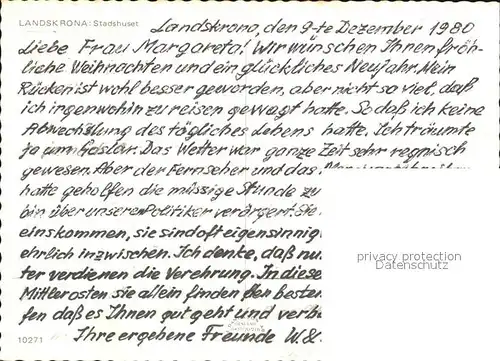 LANDSKRONA: Stadshuset
Landskrona, den 9-te Dezember 1980
Liebe Frau Margareta! Wir wünschen Ihnen fröh-
liche Weihnachten und ein glückliches Neujahr. Mein
Rücken ist wohl besser geworden, aber nicht so viel, daß
ich ingenwohin zu reisen gewagt hatte. So daß ich keine
Abwechslung des tägliches Lebens hatte. Ich träumte
ja um Goslar. Das Wetter war ganze Zeit sehr regnisch
gewesen. Aber der Fernseher und das
hatte geholfen die müssige Stunde zu
bin über unsere Politiker verärgert. Sie
einskommen, sie sind oft eigensinnig
ehrlich inzwischen. Ich denke, daß nu
ter verdienen die Verehrung. In diese
Mittlerosten sie allein finden den besten
fen daß es Ihnen gut geht und verb
Ihre ergebene Freunde W. &
privacy protection
Datenschutz
10271